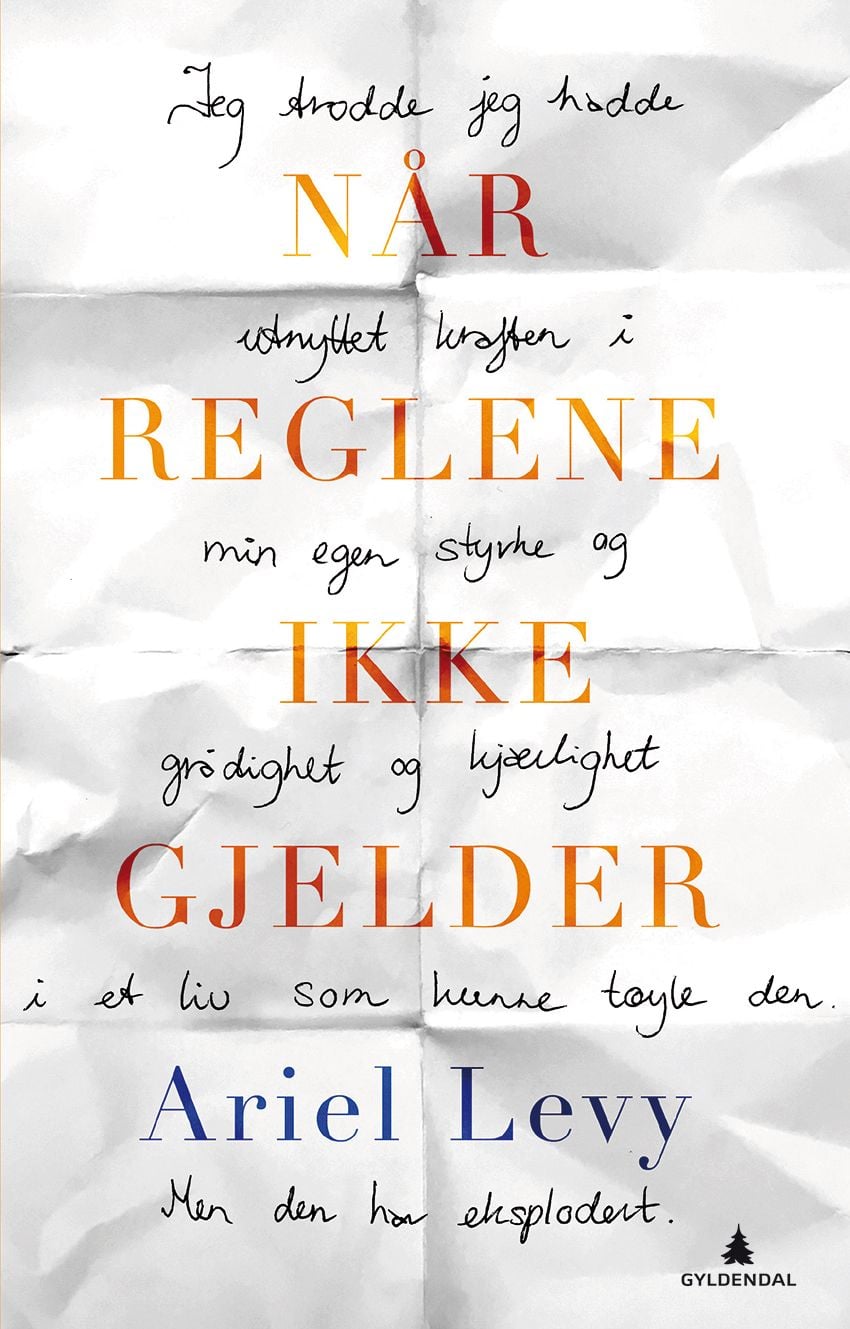 Jeg trodde jeg hadde
NÅR
utnyttet kraften i
REGLENE
min egen styrke og
IKKE
grådighet og kjærlighet
GJELDER
i et liv som kunne tøyle den.
Ariel Levy
Men den har eksplodert.
GYLDENDAL